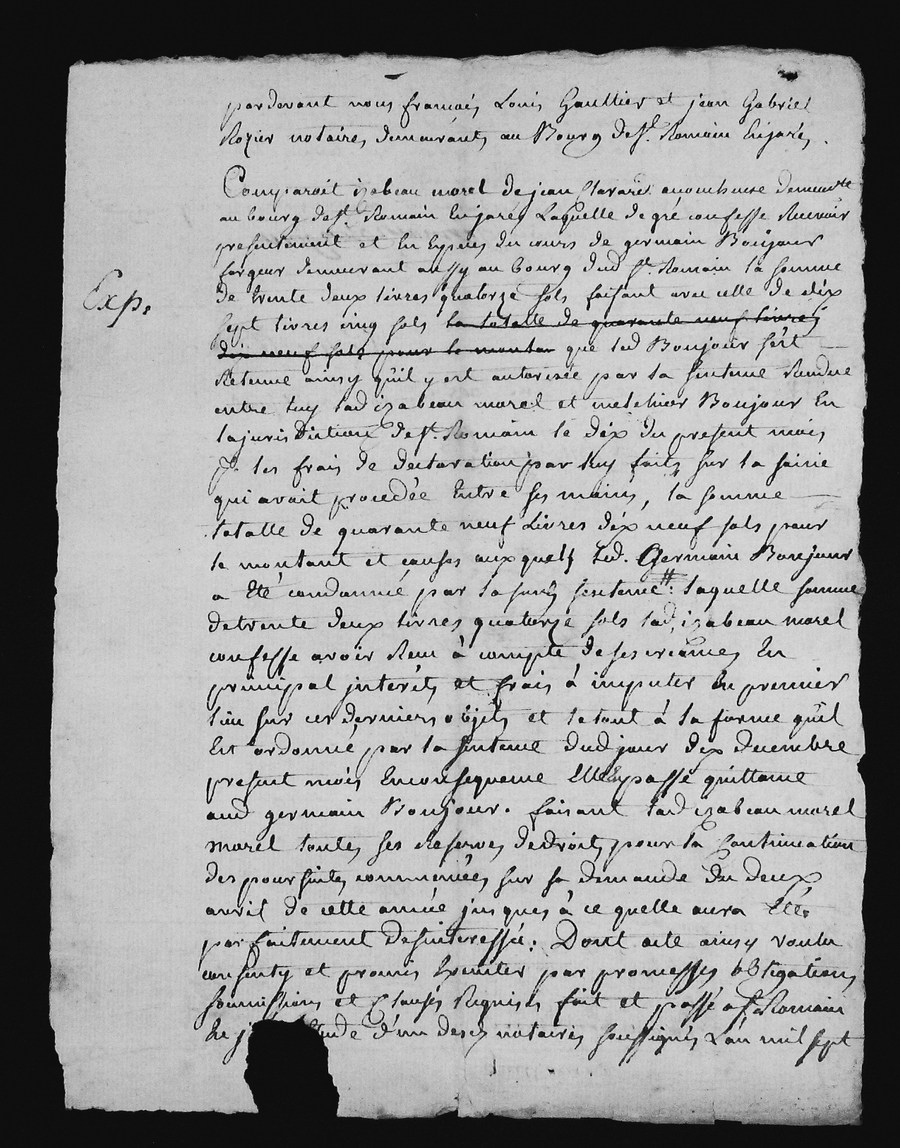 pardevant nous francois Louis Gaultier et jean Gabriel
Rozier notaires demeurants au Bourg de St. Romain En jarés,
Comparoit izabeau morel de jean Clavard accoucheuse demeurte
au bourg de St. Romain En jaréz Laquelle de gré confesse Recevoir
presentement et En Espèces du cours de germain Boujour
forgeur demeurant aussy au bourg dud St. Romain la somme
Exp.
de trente deux livres quatorze sols faisant avec celle de dix
sept livres cinq sols la totalle de quarante neuf livres
dix neuf sols pour le montan que led Boujour s'est
Retenue ainsy qu'il y est autorisée par la sentence Rendue
entre luy lad izabeau morel et melchior Boujour En
la jurisdiction de St. Romain le dix du present mois
pr. les frais de declaration par luy faits sur la saisie
qui avait procedée Entre ses mains, la somme
totalle de quarante neuf Livres dix neuf sols pour
le montant et causes auxquels led. Germain Boujour
a Eté condamné par la susd sentence : laquelle somme
de trente deux livres quatorze sols lad, izabeau morel
confesse avoir Recu à compte de ses creances En
principal interêts et frais à imputer En premier
lieu sur ces derniers objets et le tout à la forme qu'il
Est ordonné par la sentence dud jour dix decembre
present mois En consequence Elle En passe quittance
aud germain Boujour. faisant lad izabeau morel
morel toutes ses Reserves de droits pour la Continuation
des poursuites commencées sur sa demande du deux
avril de cette année jusques à ce quelle aura Eté
parfaitement desinteressée. Dont acte ainsy voulu
consenty et promis Executer par promesses obligations
soumissions et Clauses Requises fait et passé a St. Romain
En j tude d'un desd notaires soussignés Lan mil sept